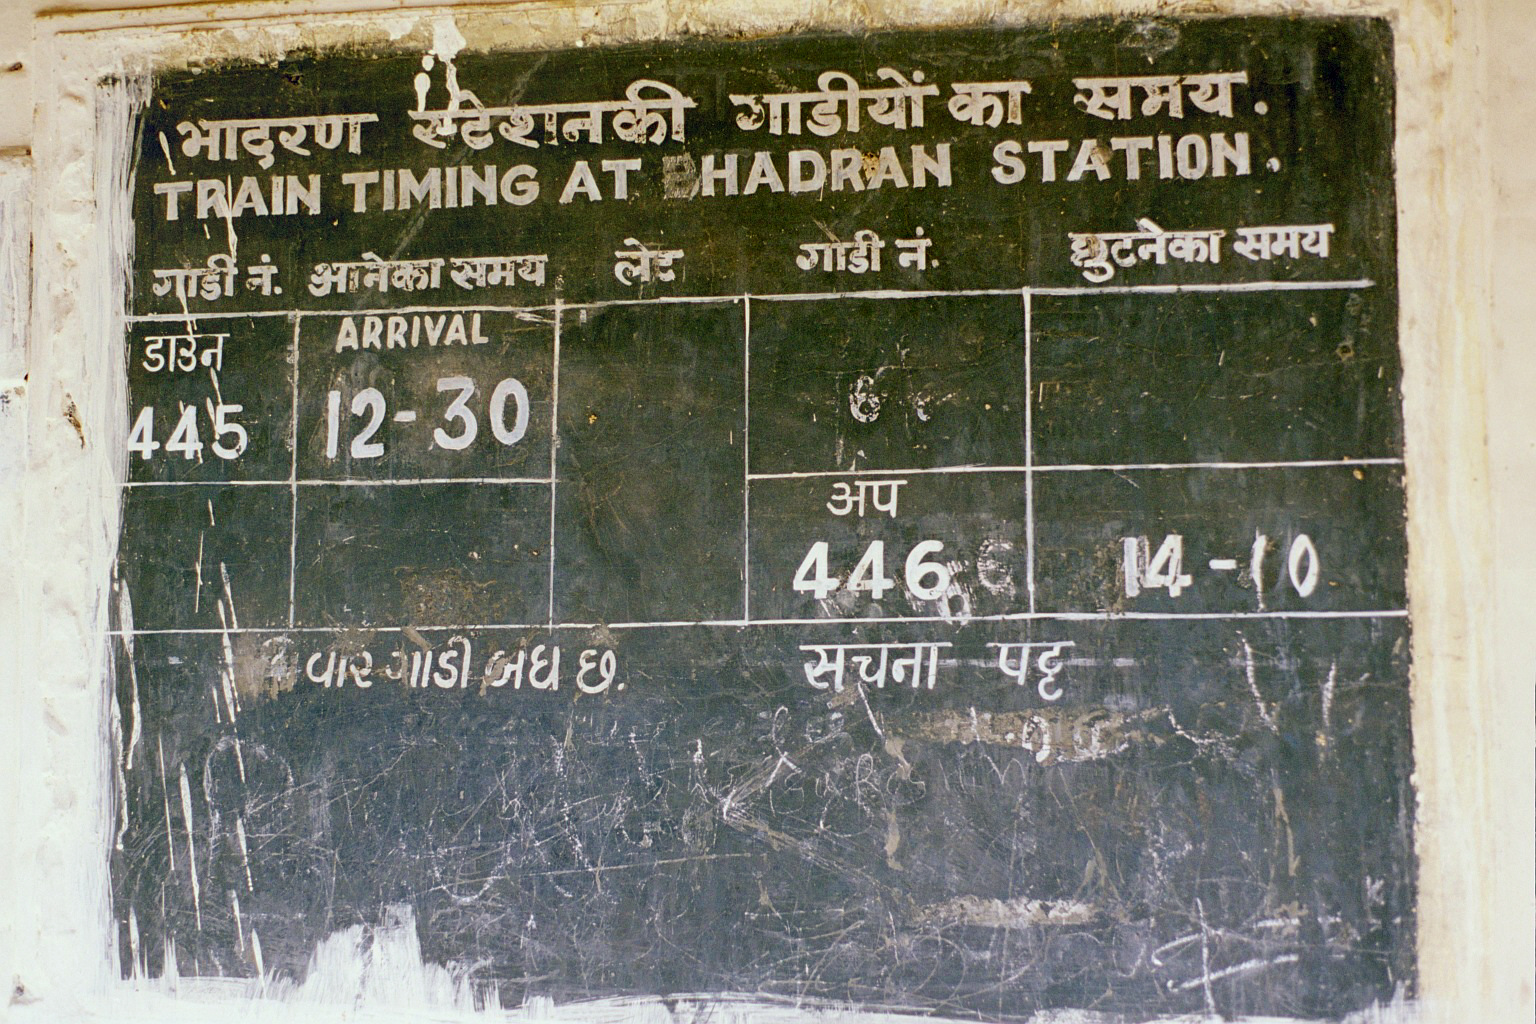 भादरण स्टेशनकी गाडीयों का समय.
TRAIN TIMING AT BHADRAN STATION.
गाडी नं. आनेका समय लेट गाडी नं. छुटनेका समय
डाउन ARRIVAL
445 12-30
अप
446 14-10
વાર ગાડી બંધ છે. सूचना पट्ट